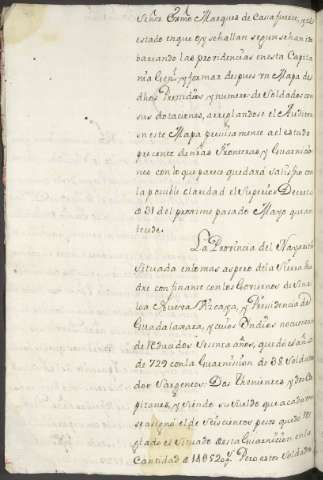 Señor Exmo Marques de Casafuerte, y el
estado en que oy se hallan segun se han ido
bariando las providencias en esta Capita
nia Genl y formar despues un Mapa de
dhos Presidios, y numero de Soldados con
sus dotaciones, arreglandose el Auditor
en este Mapa precisamente a el estado
presente de nras Fronteras, y Guarnicio
nes con lo que parece quedará satisfho con
la posible claridad el Superior Decreto
de 31 del proximo pasado Mayo que an
tecede.
La Provincia del Nayarit
Situada en lo mas aspero de la Sierra Ma
dre confinante con los Goviernos de Sina
loa Nueva Vizcaya, y Presidencia de
Guadalaxara, y cuios Indios no avian
sido reducidos quedo el año
de 729 con la Guarnicion de 38 Soldados
dos Sargentos: Dos Thenientes y dos Ca
pitanes, y siendo su sueldo que a cada uno
se asignó el de trescientos pesos quedó re
glado el Situado de esta Guarnicion en la
Cantidad de Pero estos Soldados